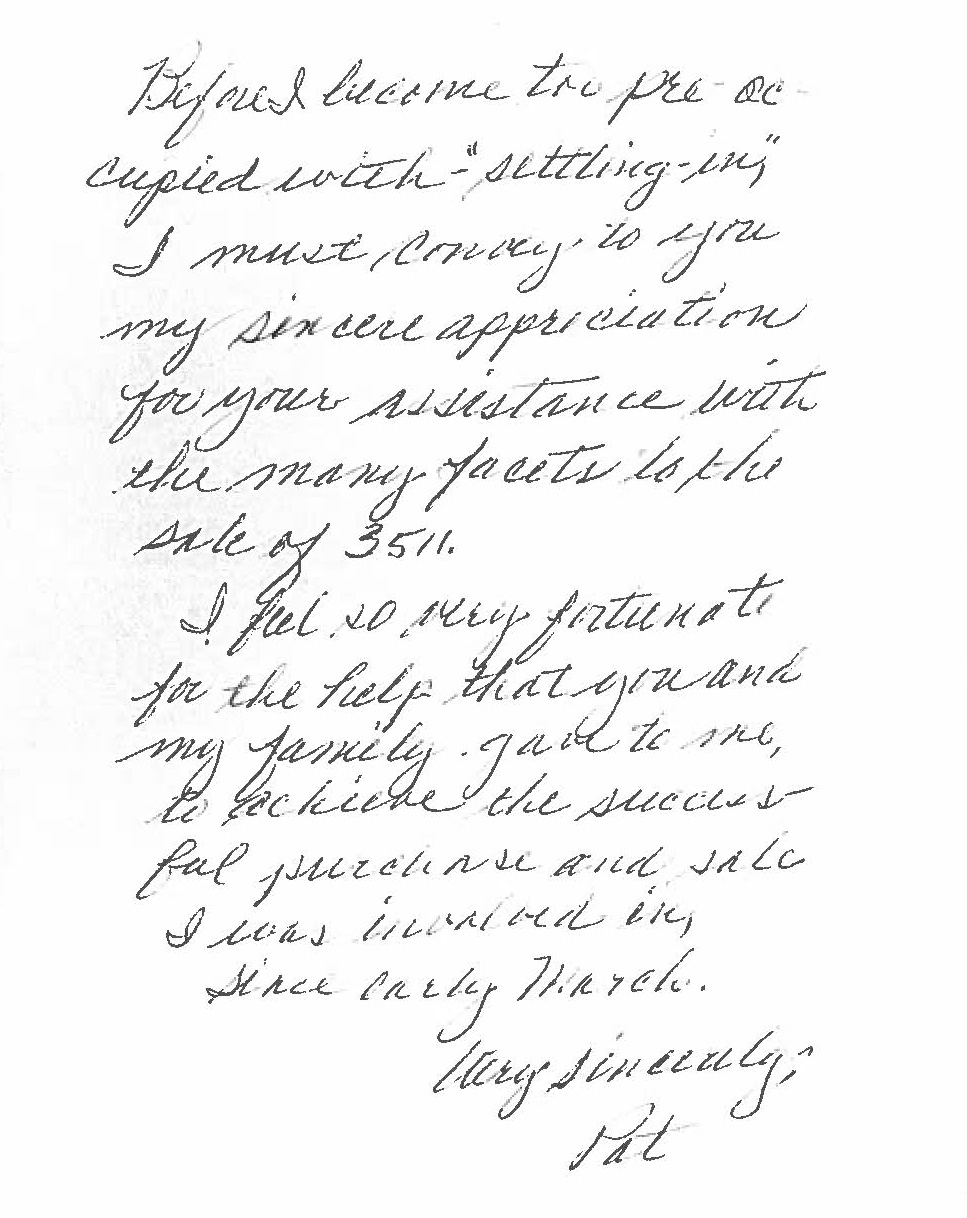 Before I become too pre-oc-
cupied with - "settling-in,"
I must convey to you
my sincere appreciation
for your assistance with
the many facets to the
sale of 3511.
I feel so very fortunate
for the help that you and
my family gave to me,
to achieve the success-
ful purchase and sale
I was involved in,
since early March.
Very sincerely,
Pat